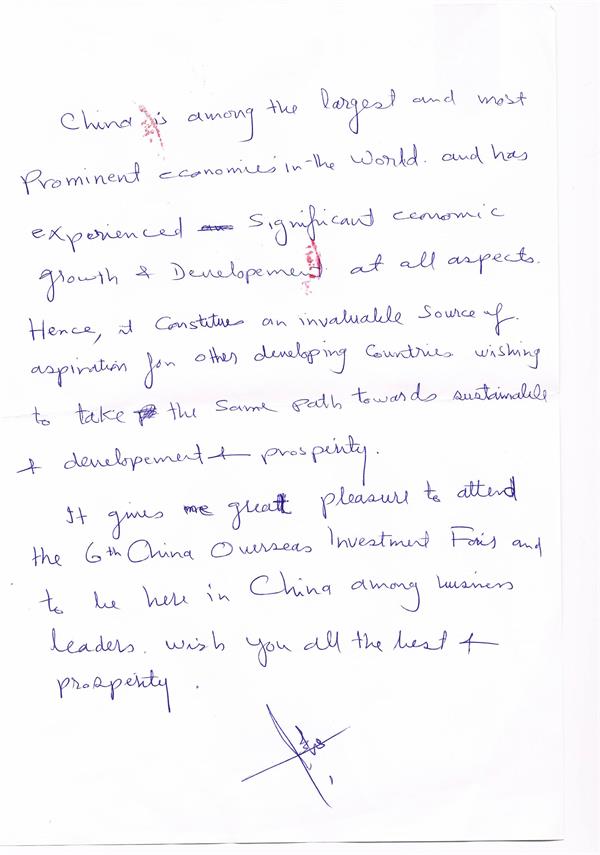 China is among the largest and most
Prominent economies in the World. and has
experienced significant economic
growth & Developement at all aspects.
Hence, it Constitues an invaluable source of
aspiration for other developing Countries wishing
to take the same path towards sustainable
+ developement + prosperity.
It gives me great pleasure to attend
the 6th China Overseas Investment Fair and
to be here in China among business
leaders. wish you all the best +
prosperity.